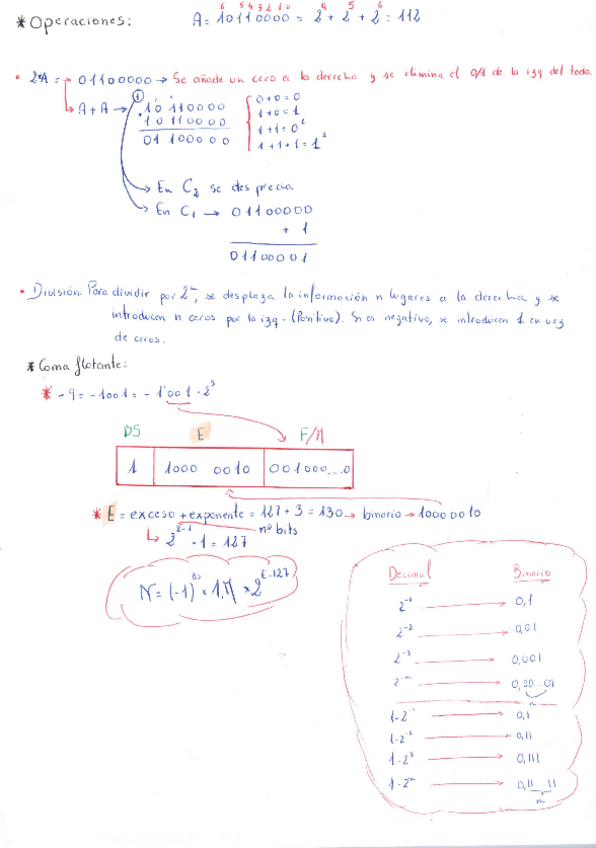 * Operaciones:
6 5 4 3 2 1 0
A = 10110000 = 2⁴ + 2⁵ + 2⁶ = 112
• 2·A = → 01100000 → Se añade un cero a la derecha y se elimina el 0/1 de la izq del todo.
A + A → 1 10 110000
10 110000
01 100000
0+0=0
1+0=1
1+1=0¹
1+1+1=1¹
→ En C₂ se desprecia
→ En C₁ → 01100000
+ 1
01100001
• División: Para dividir por 2ⁿ, se desplaza la información n lugares a la derecha y se
introducen n ceros por la izq. (Positivo). Si es negativo, se introducen 1 en vez
de ceros.
* Coma flotante:
* -9 = -1001 = -1'001 · 2³
DS E F/M
1 1000 0010 001000...0
* E = exceso + exponente = 127 + 3 = 130 → binario → 10000010
nº bits
↳ 2⁸⁻¹ - 1 = 127
N = (-1)ᴰˢ × 1,M × 2ᴱ⁻¹²⁷
Decimal Binario
2⁻¹ → 0,1
2⁻² → 0,01
2⁻³ → 0,001
2⁻ⁿ → 0,00...01
n
1-2⁻¹ → 0,1
1-2⁻² → 0,11
1-2⁻³ → 0,111
1-2⁻ⁿ → 0,11...11
n